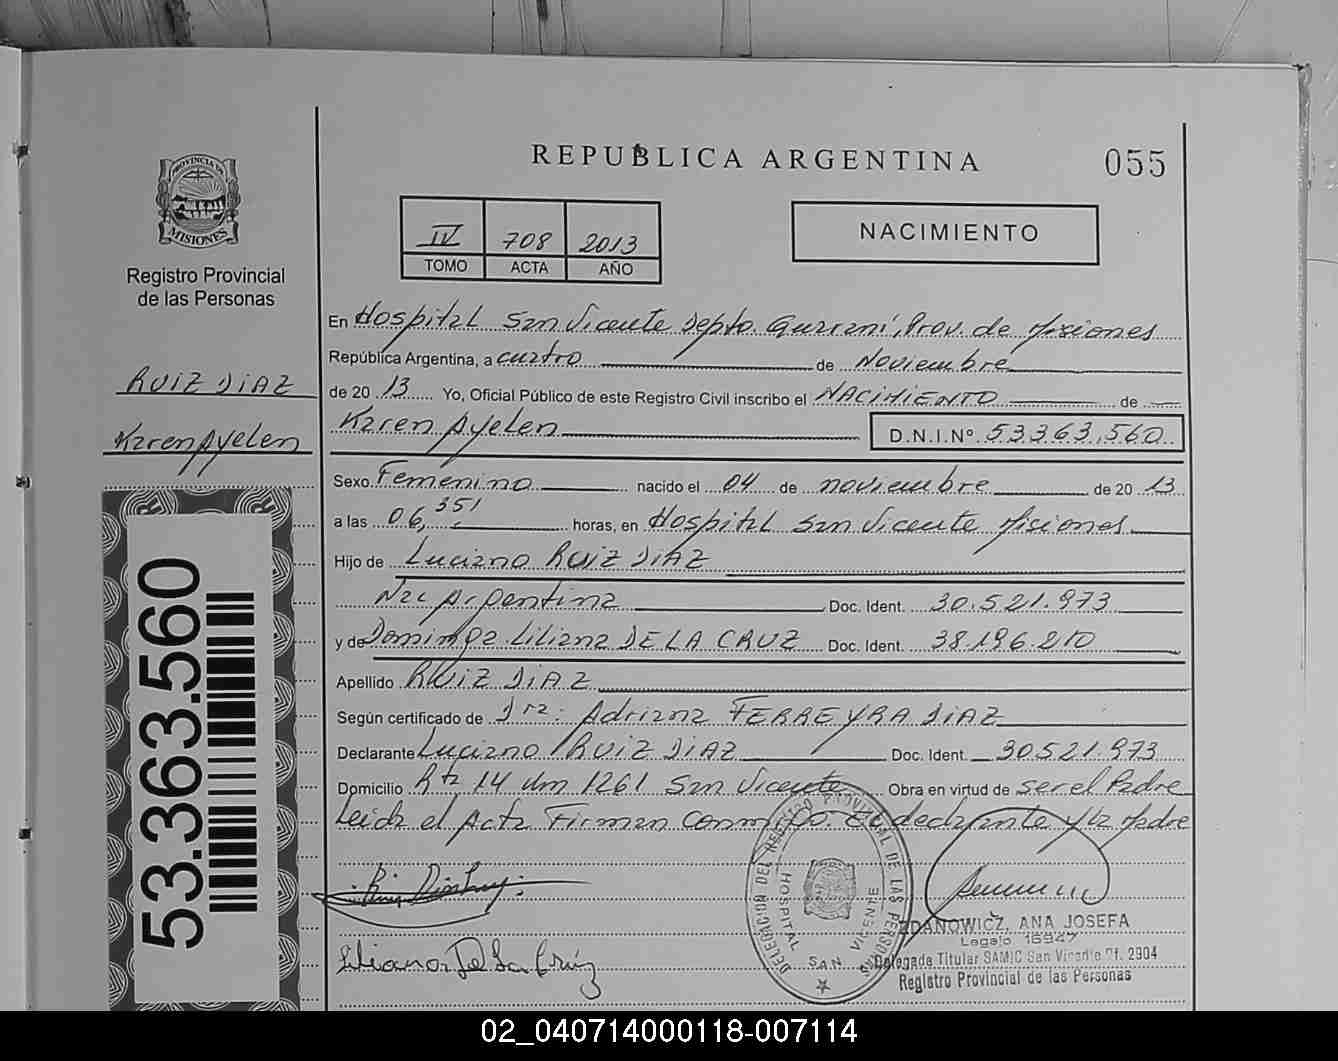 REPUBLICA ARGENTINA
055
PROVINCIA DE
MISIONES
Registro Provincial
de las Personas
IV 708 2013
TOMO ACTA AÑO
NACIMIENTO
En Hospital San Vicente Depto. Guaraní, Prov. de Misiones
República Argentina, a cuatro de Noviembre
RUIZ DIAZ
de 20 13 Yo, Oficial Público de este Registro Civil inscribo el NACIMIENTO de
Karen Ayelen
Karen Ayelen D.N.I.Nº 53.363.560
Sexo Femenino nacido el 04 de noviembre de 20 13
a las 06,35' horas, en Hospital San Vicente Misiones
Hijo de Luciano RUIZ DIAZ
Nac Argentina Doc. Ident. 30.521.973
y de Dominga Liliana DE LA CRUZ Doc. Ident. 38.196.210
Apellido RUIZ DIAZ
Según certificado de Dra. Adriana FERREYRA DIAZ
Declarante Luciano RUIZ DIAZ Doc. Ident. 30.521.973
Domicilio Rta 14 km 1261 San Vicente Obra en virtud de ser el Padre
Leida el Acta Firman conmigo. El declarante y la Madre
53.363.560
DELEGACION DEL REGISTRO PROVINCIAL DE LAS PERSONAS
HOSPITAL SAN VICENTE
Liliana De La Cruz
ZDANOWICZ, ANA JOSEFA
Legajo 16947
Delegada Titular SAMIC San Vicente Of. 2904
Registro Provincial de las Personas
02_040714000118-007114